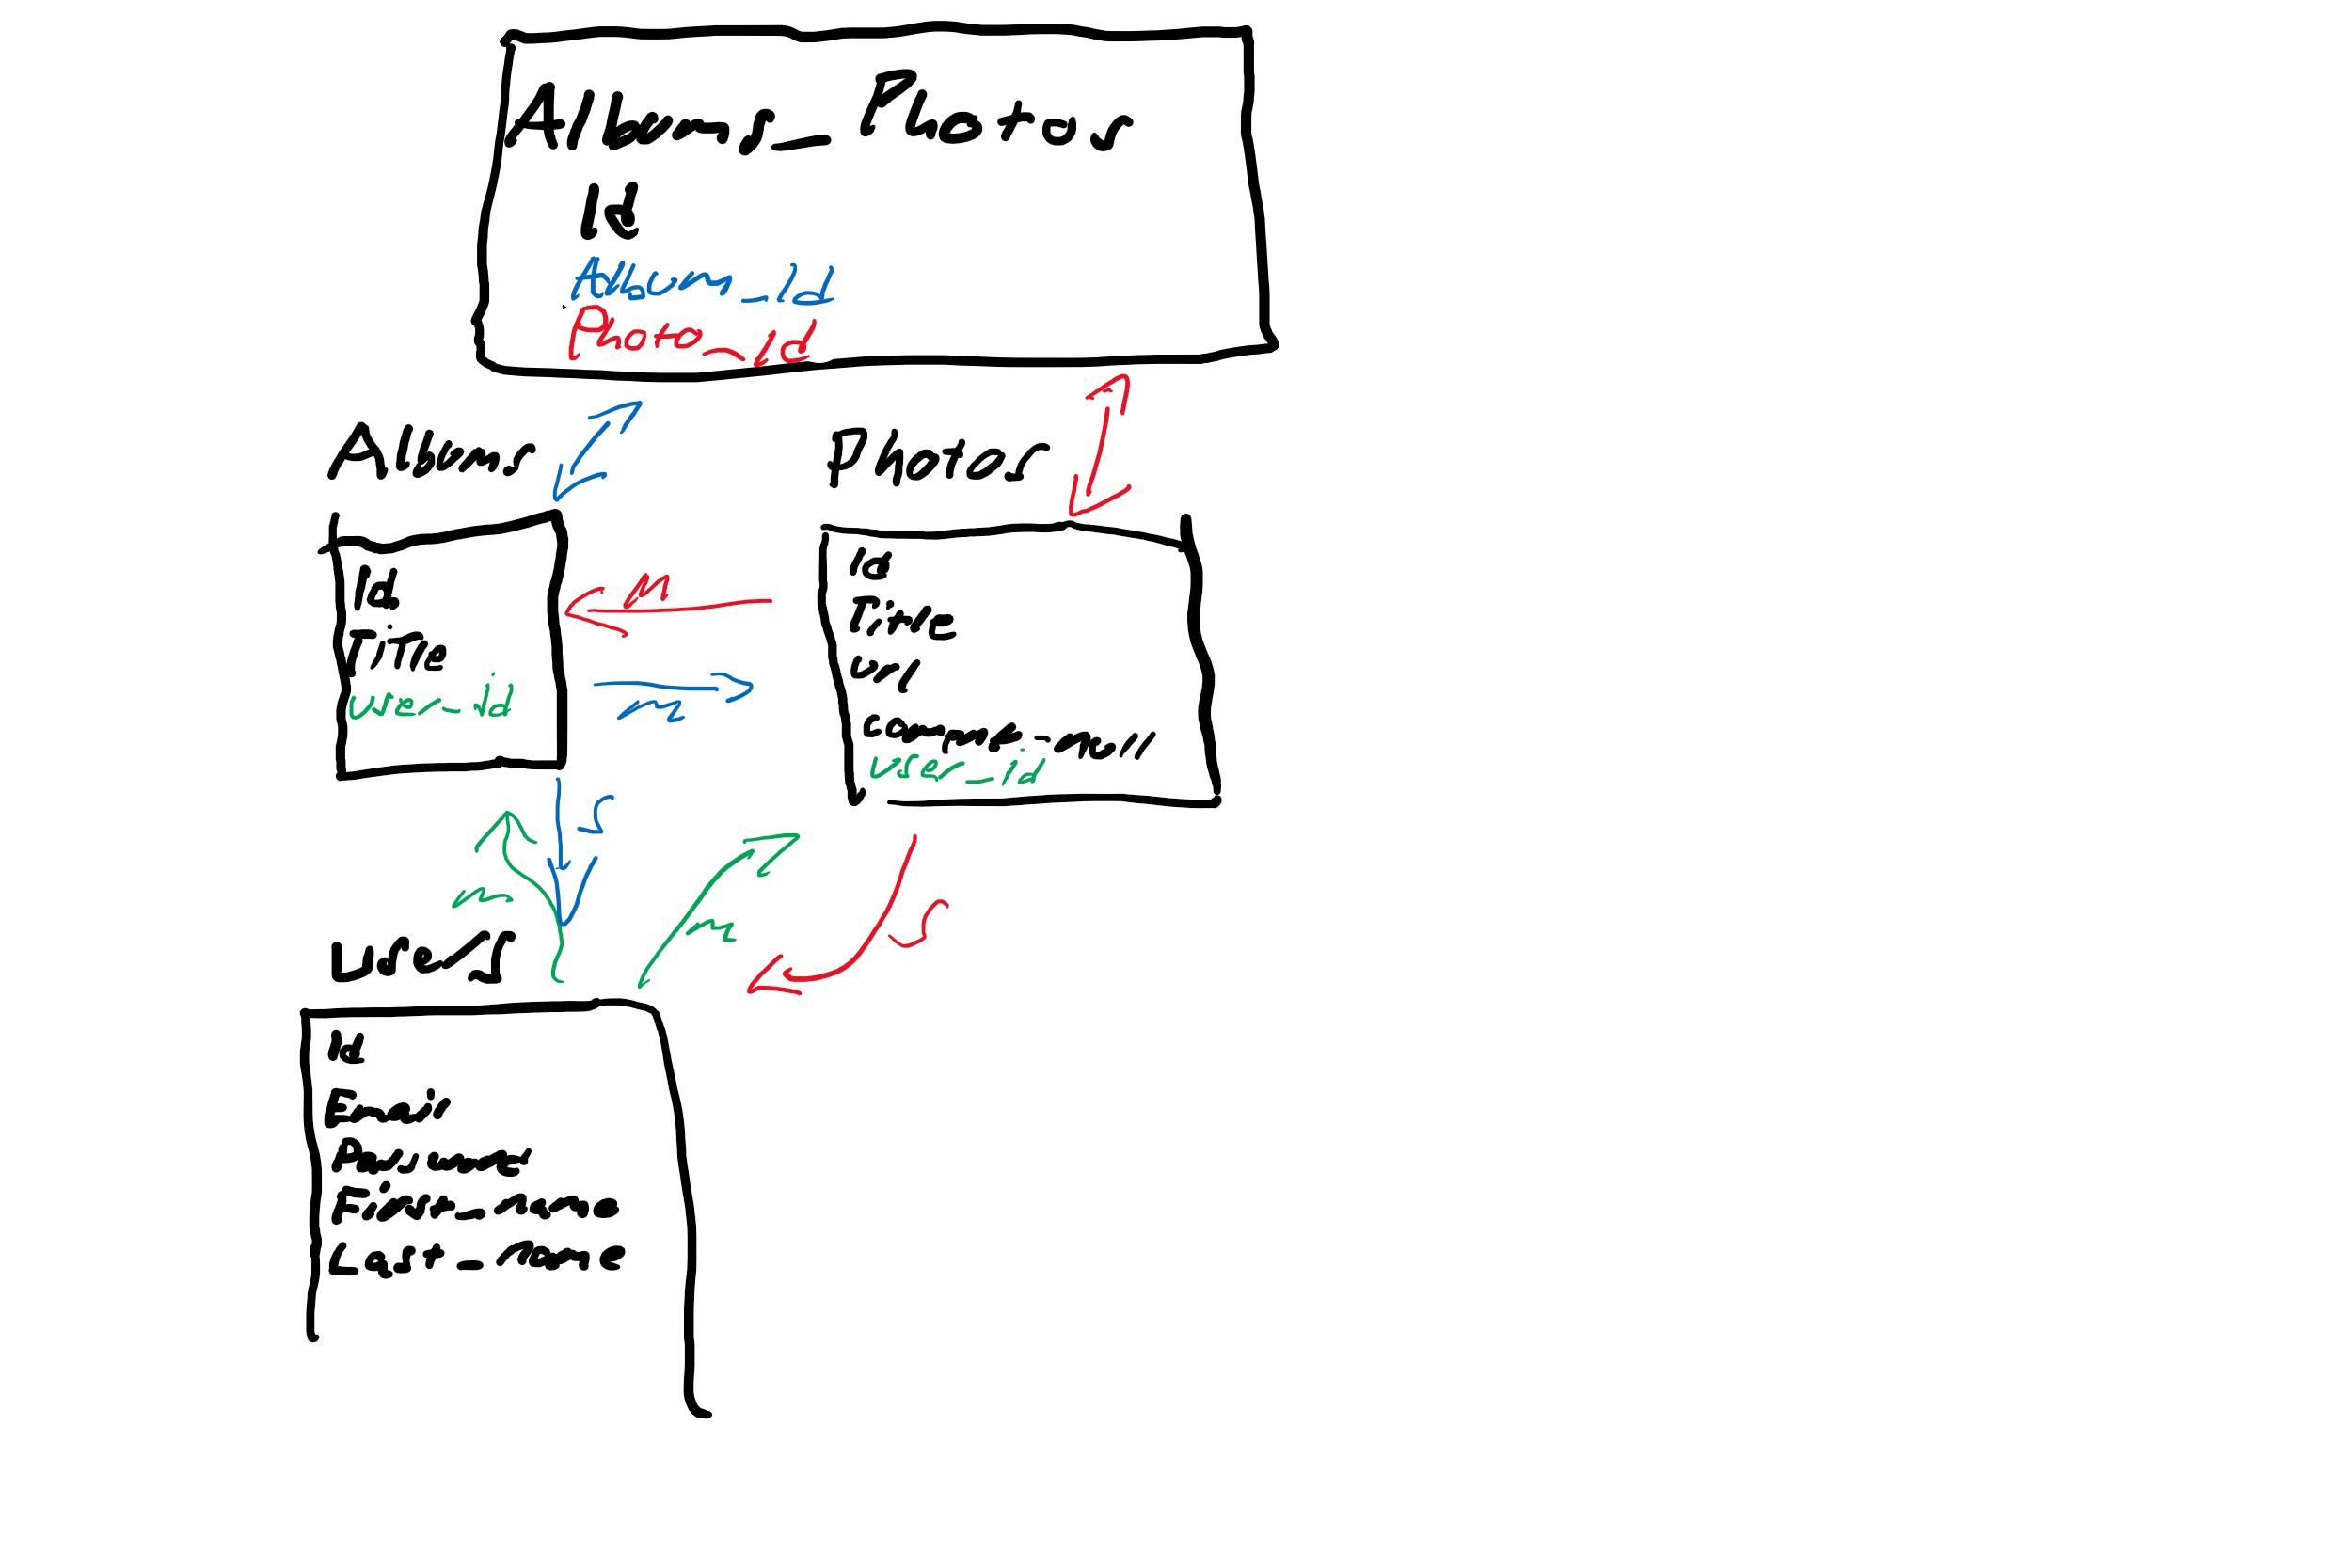 Albums_Photos
Id
Album_id
Photo_id
Albums
Photos
Id
Title
user_id
Id
Title
Url
Comment-null
user_id
M
m
S
m
m
S
Users
Id
Email
Password
First_name
Last_name